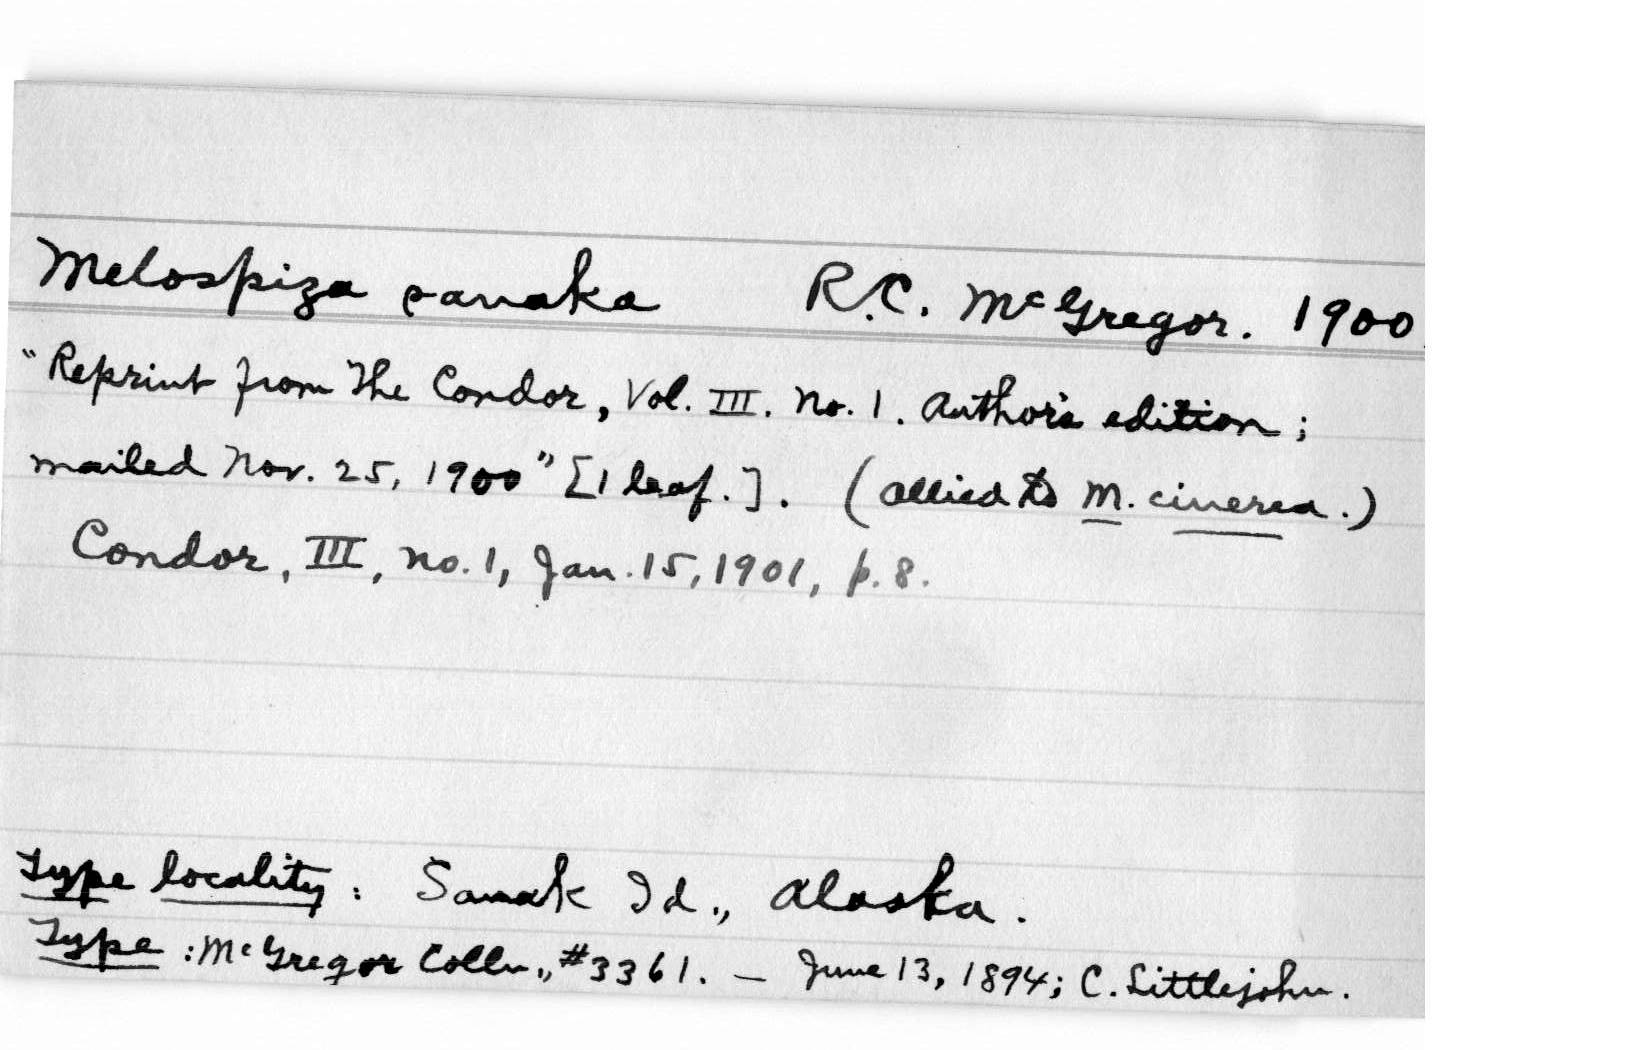 Melospiza sanaka R.C. McGregor. 1900.
"Reprint from The Condor, Vol. III. No. 1. Author's edition;
mailed Nov. 25, 1900" [1 leaf.]. (allied to M. cinerea.)
Condor, III, no. 1, Jan. 15, 1901, p. 8.
Type locality: Sanak Id., Alaska.
Type: McGregor Colln., #3361. — June 13, 1894; C. Littlejohn.